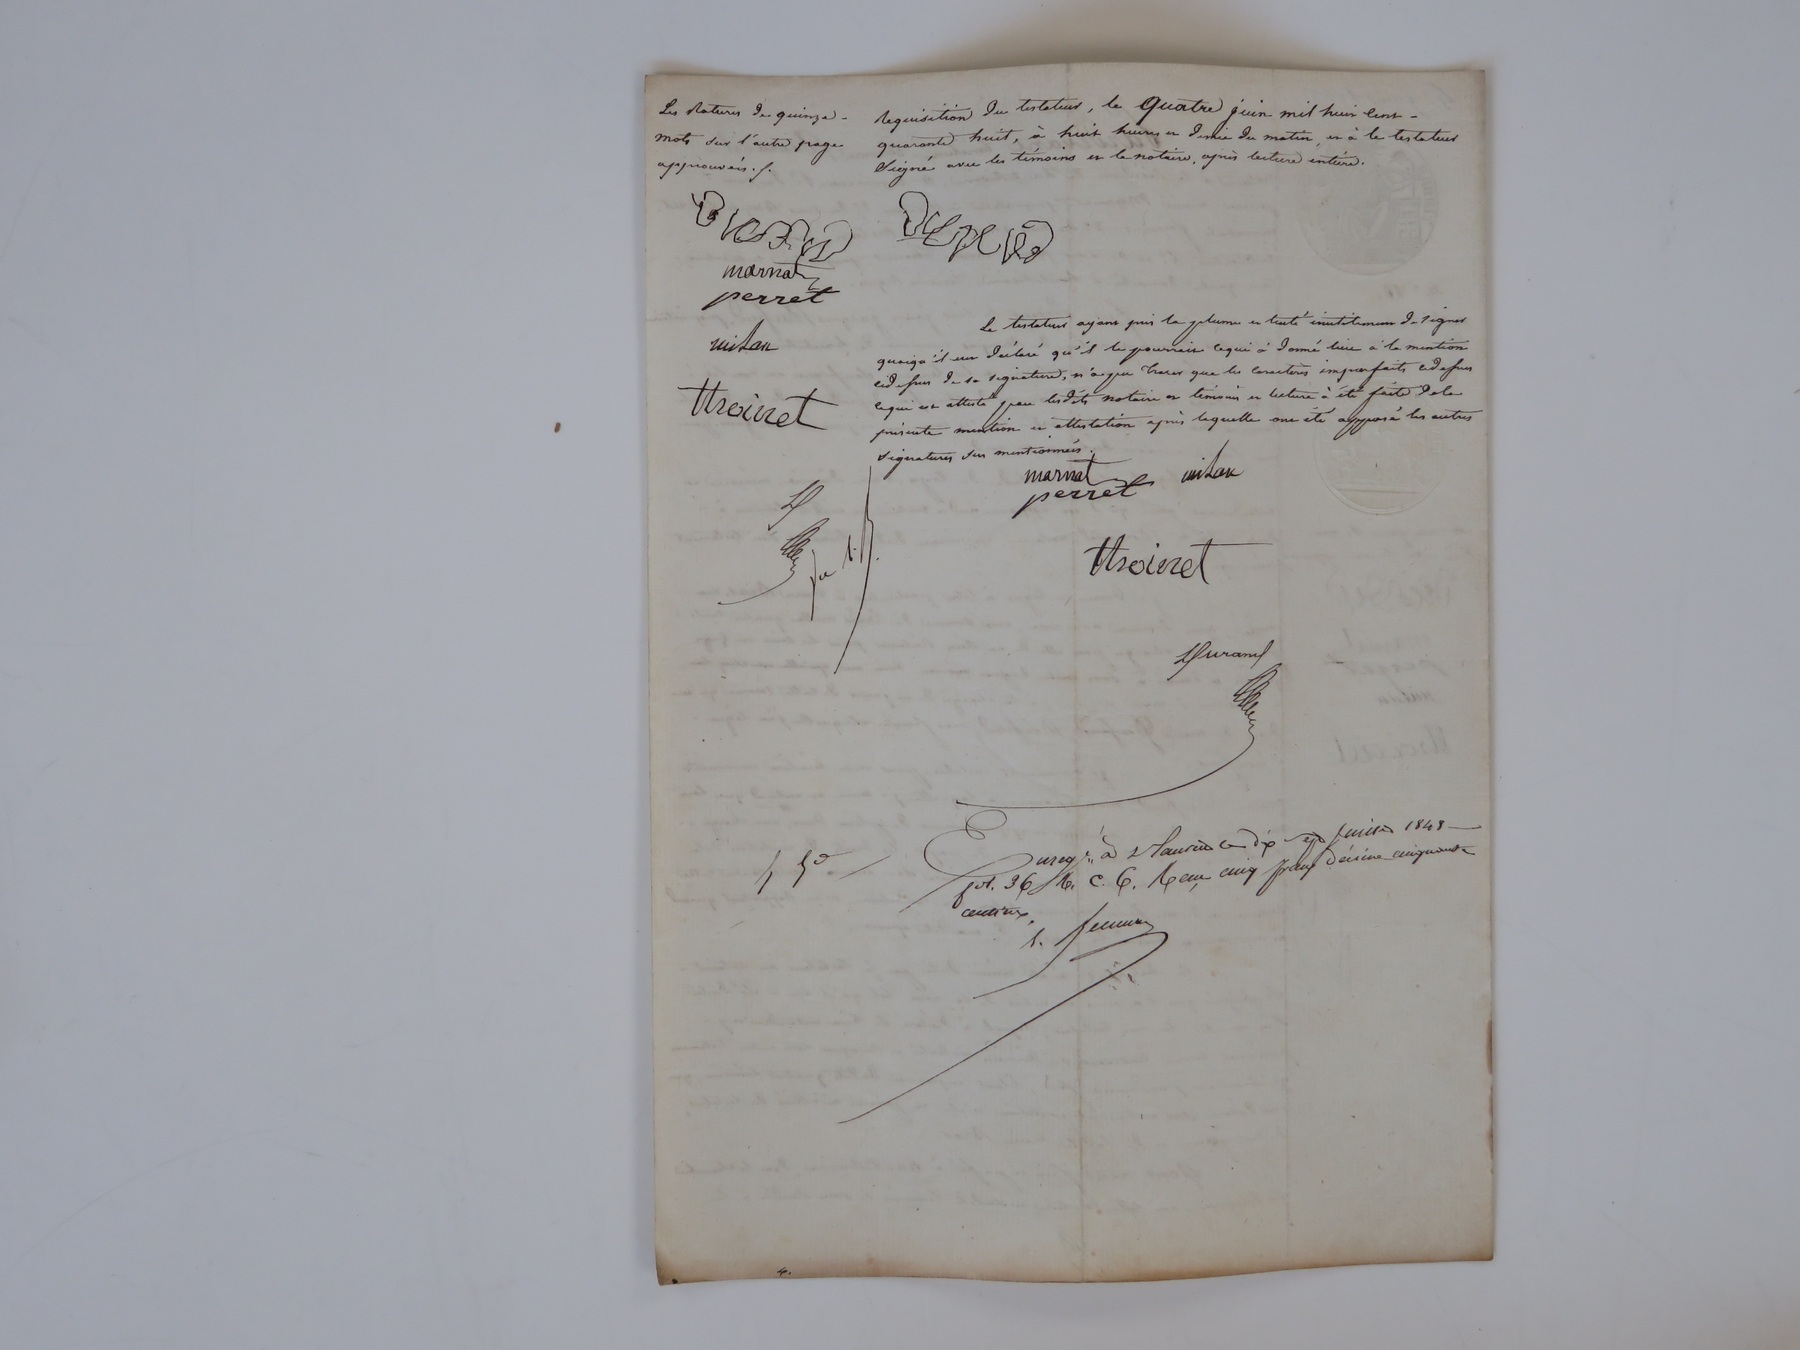 Les Ratures de quinze
mots sur l'autre page
approuvés. /.
marnat
perret
milan
thoinet
Requisition du testateur, le quatre juin mil huit cent
quarante huit, à huit heures et demie du matin, et à le testateur
Signé avec les témoins et le notaire, après lecture entière.
Le testateur ayant pris la plume et tenté inutilement de signer
quoiqu'il eut déclaré qu'il le pourrait ce qui à donné lieu à la mention
cidessus de sa signature, n'a pu tracer que les caractères imparfaits cidessus
ce qui est attesté par lesdits notaire et témoins et lecture à été faite de la
présente mention et attestation après laquelle ont été apposé les autres
signatures sus mentionnées.
marnat milan
perret
thoinet
Durand
5 50
Enregé à St dix sept juin 1848
fol. 36 R. C. 6. Reçu cinq francs décime cinquante
centimes
4.